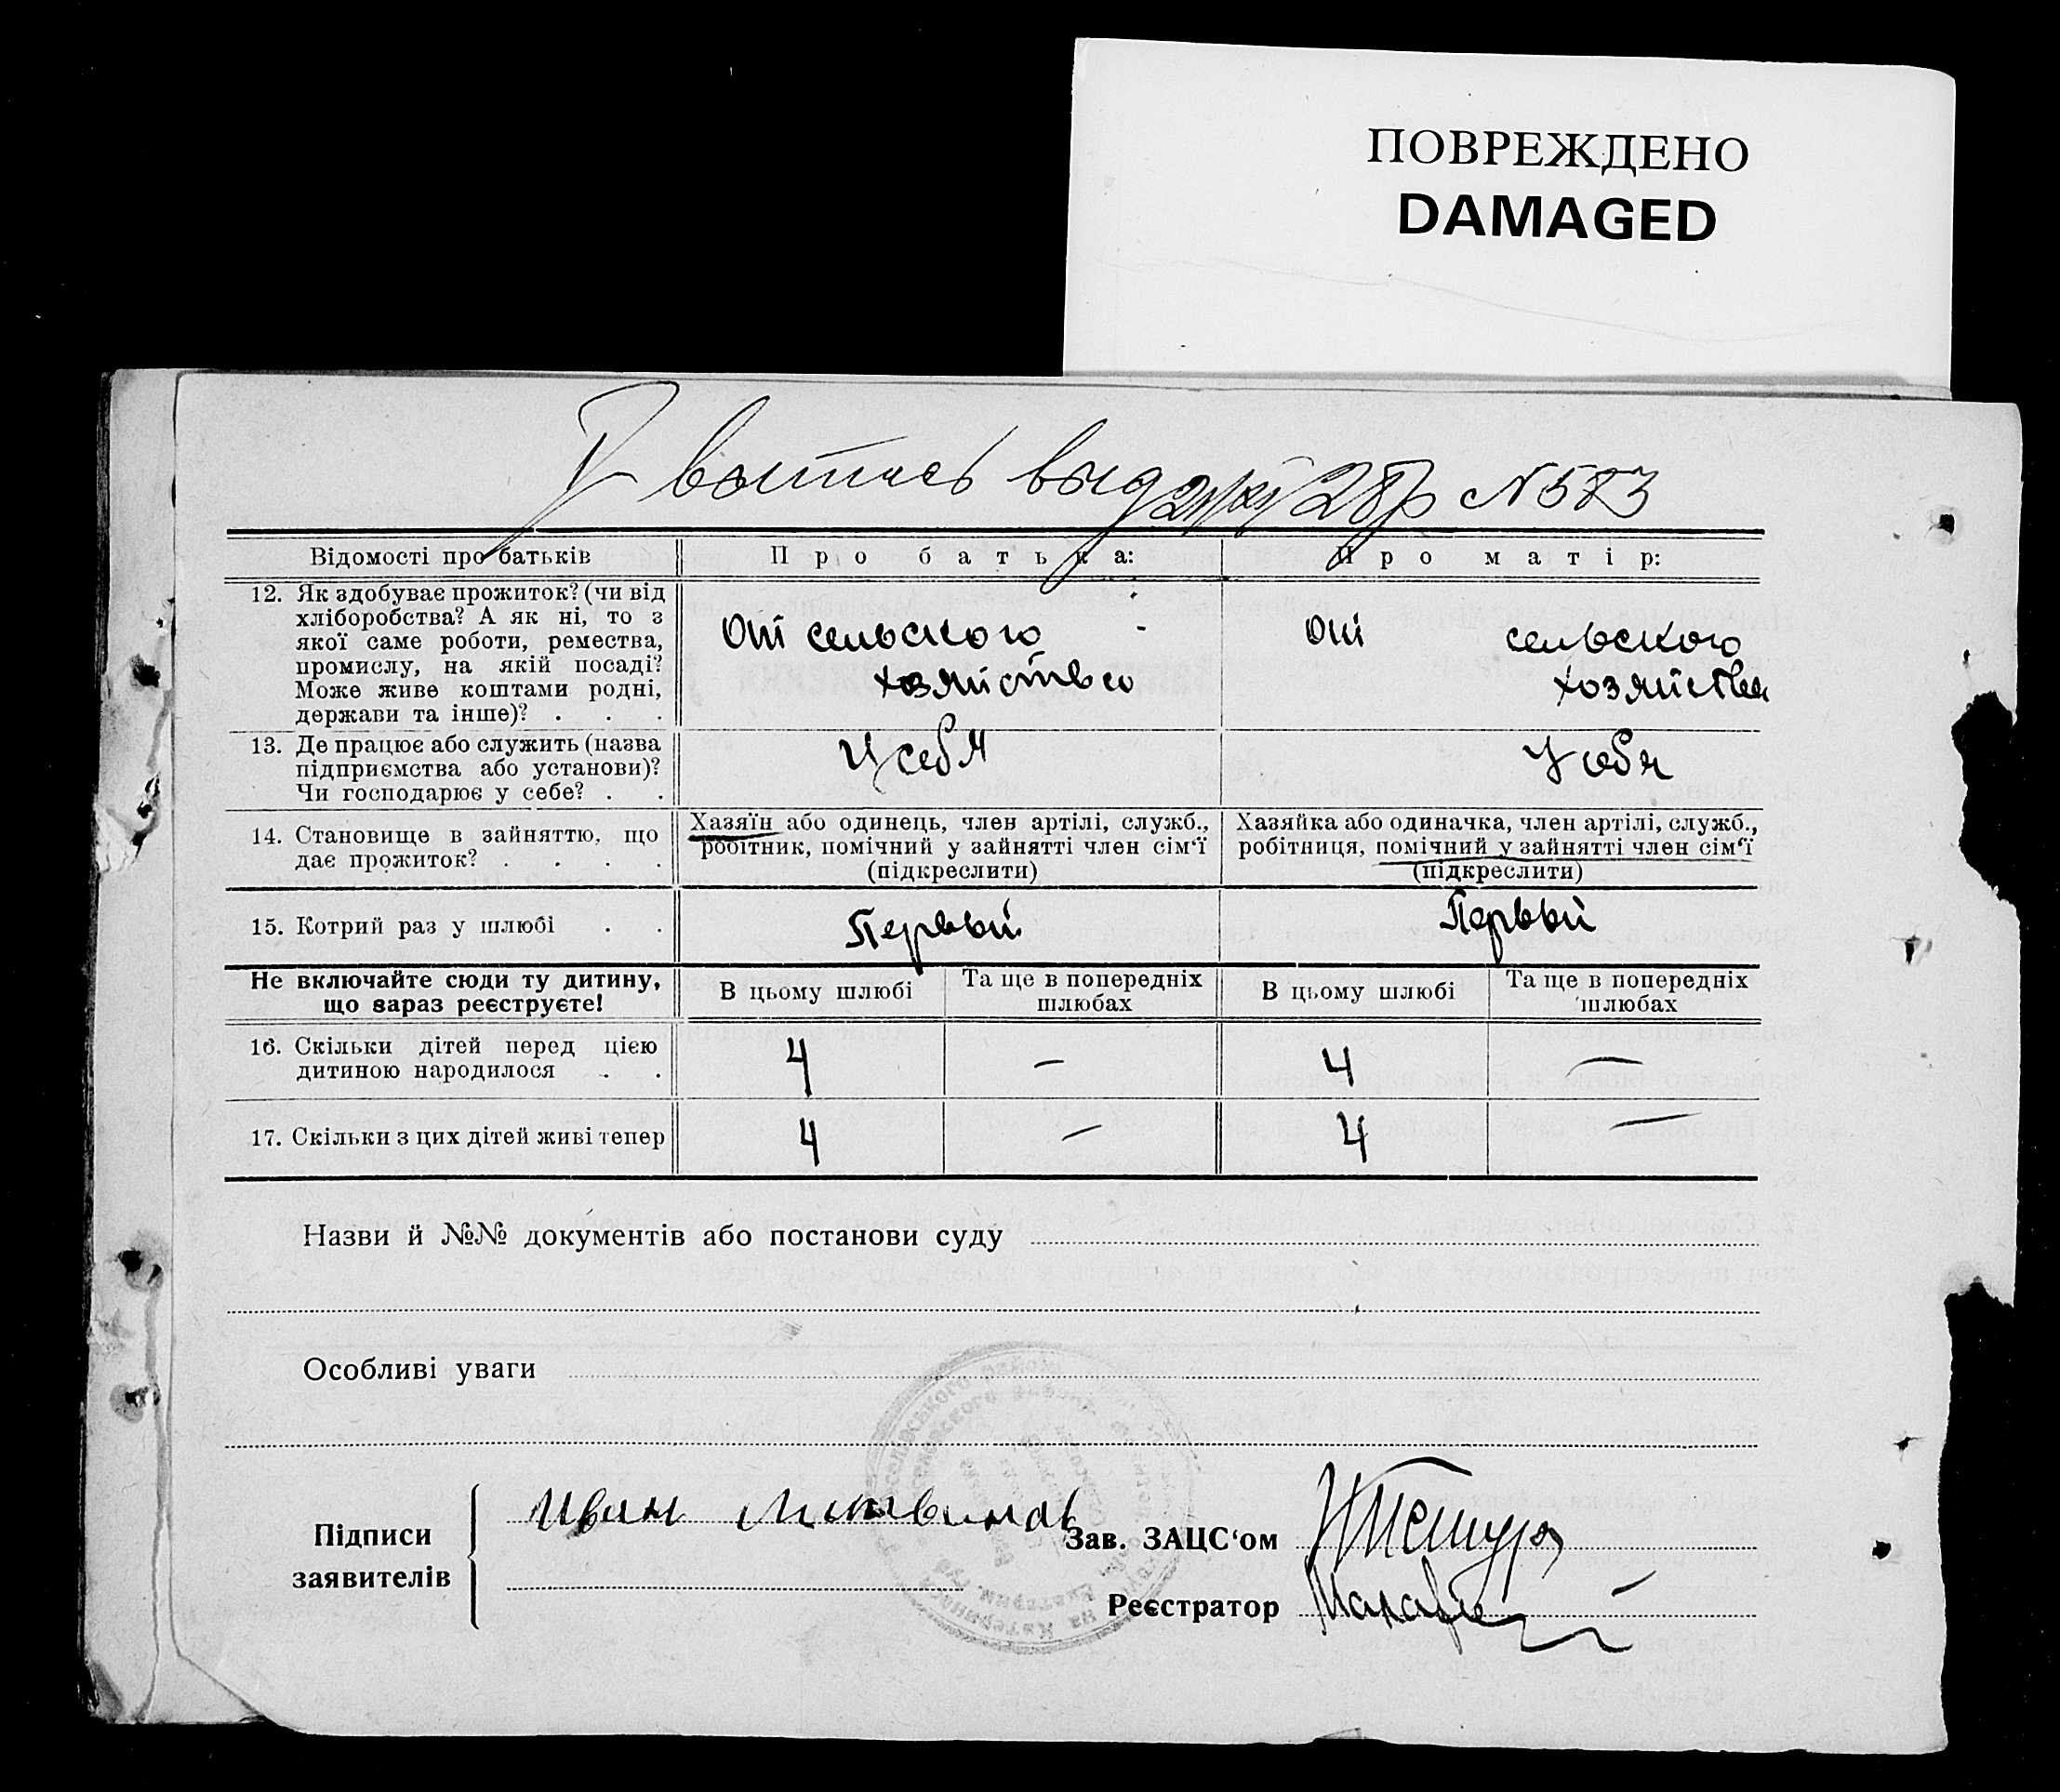 ПОВРЕЖДЕНО
DAMAGED
выпись выд 28 N 573
Відомості про батьків
Про батька:
Про матір:
12. Як здобуває прожиток? (чи від
хліборобства? А як ні, то з
якої саме роботи, ремества,
промислу, на якій посаді?
Може живе коштами родні,
держави та інше)? . . .
От сельского
хозяйства
От сельского
хозяйства
13. Де працює або служить (назва
підприємства або установи)?
Чи господарює у себе? . .
У себя
У себя
14. Становище в зайняттю, що
дає прожиток? . . . .
Хазяїн або одинець, член артілі, служб.,
робітник, помічний у зайнятті член сім‘ї
(підкреслити)
Хазяйка або одиначка, член артілі, служб.,
робітниця, помічний у зайнятті член сім‘ї
(підкреслити)
15. Котрий раз у шлюбі . .
Первый
Первый
Не включайте сюди ту дитину,
що зараз реєструєте!
В цьому шлюбі
Та ще в попередніх
шлюбах
В цьому шлюбі
Та ще в попередніх
шлюбах
16. Скільки дітей перед цією
дитиною народилося . .
4 — 4 —
17. Скільки з цих дітей живі тепер
4 — 4 —
Назви й №№ документів або постанови суду
Особливі уваги
Підписи
заявителів
Иван Литвинов
Зав. ЗАЦС‘ом
Реєстратор